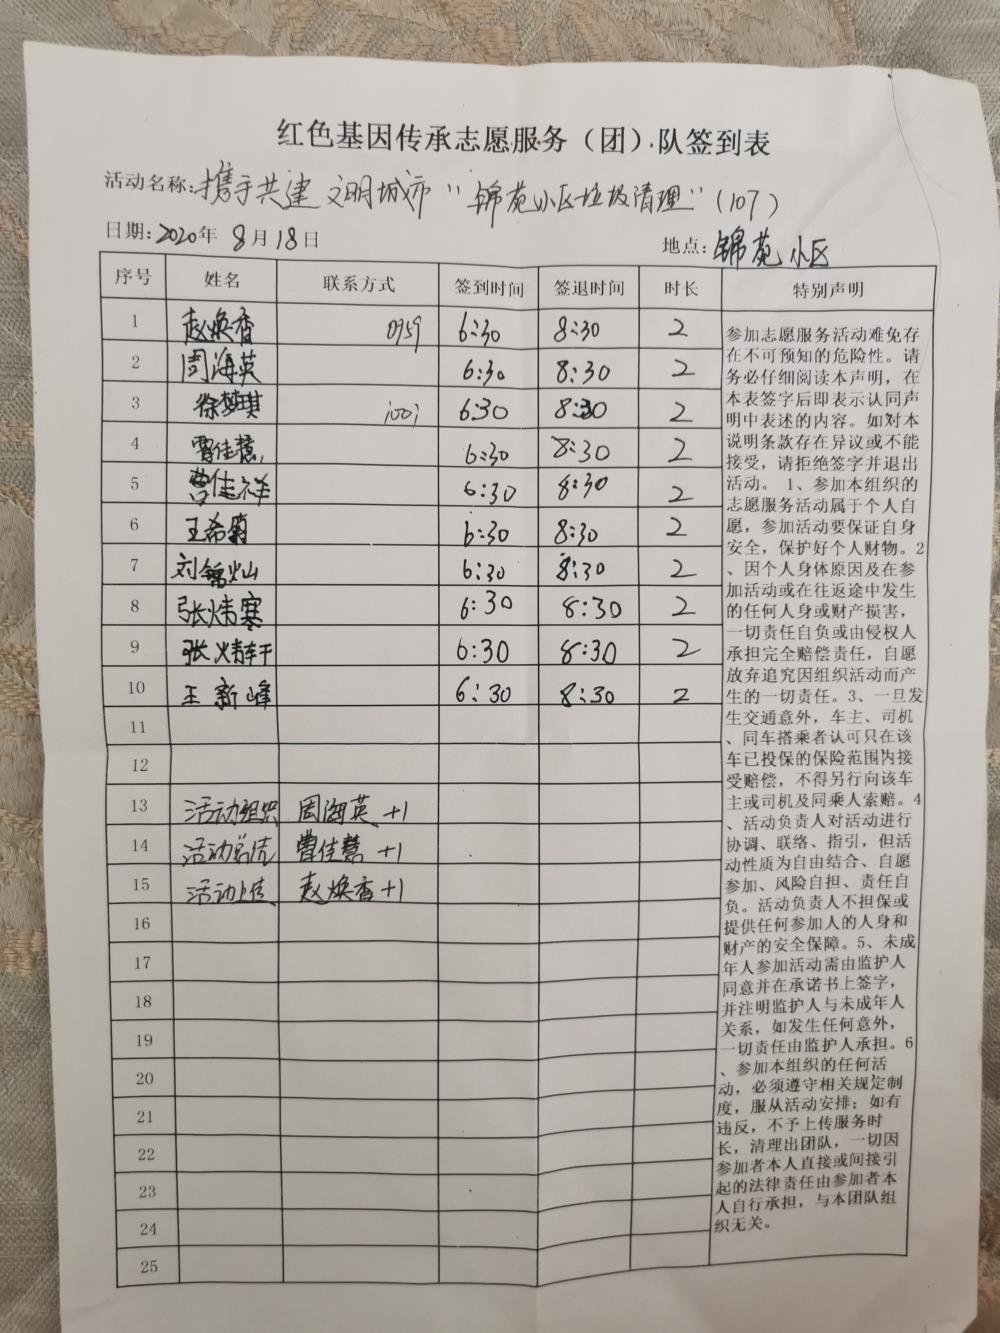 红色基因传承志愿服务（团）队签到表
活动名称:携手共建文明城市“锦苑小区垃圾清理”（107）
日期:2020年8月18日
地点:锦苑小区
序号 姓名 联系方式 签到时间 签退时间 时长 特别声明
1 赵焕香 0959 6:30 8:30 2
2 周海英 6:30 8:30 2
3 徐梦琪 6:30 8:30 2
4 曹佳慧 6:30 8:30 2
5 曹佳祥 6:30 8:30 2
6 王希 6:30 8:30 2
7 刘锦灿 6:30 8:30 2
8 张炜寒 6:30 8:30 2
9 张 6:30 8:30 2
10 王新峰 6:30 8:30 2
11
12
13 活动组织 周海英+1
14 活动总结 曹佳慧+1
15 活动上传 赵焕香+1
16
17
18
19
20
21
22
23
24
25
参加志愿服务活动难免存
在不可预知的危险性。请
务必仔细阅读本声明，在
本表签字后即表示认同声
明中表述的内容。如对本
说明条款存在异议或不能
接受，请拒绝签字并退出
活动。 1、参加本组织的
志愿服务活动属于个人自
愿，参加活动要保证自身
安全，保护好个人财物。2
、因个人身体原因及在参
加活动或在往返途中发生
的任何人身或财产损害，
一切责任自负或由侵权人
承担完全赔偿责任，自愿
放弃追究因组织活动而产
生的一切责任。3、一旦发
生交通意外，车主、司机
、同车搭乘者认可只在该
车已投保的保险范围内接
受赔偿，不得另行向该车
主或司机及同乘人索赔。4
、活动负责人对活动进行
协调、联络、指引，但活
动性质为自由结合、自愿
参加、风险自担、责任自
负。活动负责人不担保或
提供任何参加人的人身和
财产的安全保障。5、未成
年人参加活动需由监护人
同意并在承诺书上签字，
并注明监护人与未成年人
关系，如发生任何意外，
一切责任由监护人承担。6
、参加本组织的任何活
动，必须遵守相关规定制
度，服从活动安排；如有
违反，不予上传服务时
长，清理出团队，一切因
参加者本人直接或间接引
起的法律责任由参加者本
人自行承担，与本团队组
织无关。